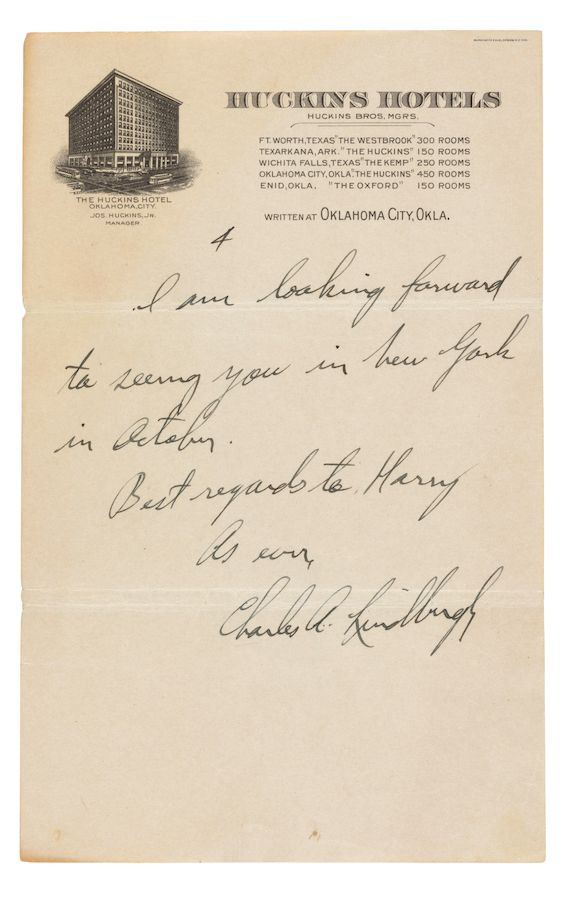 HUCKINS HOTELS
HUCKINS BROS. MGRS.
FT. WORTH, TEXAS "THE WESTBROOK" 300 ROOMS
TEXARKANA, ARK. "THE HUCKINS" 150 ROOMS
WICHITA FALLS, TEXAS "THE KEMP" 250 ROOMS
OKLAHOMA CITY, OKLA. "THE HUCKINS" 450 ROOMS
ENID, OKLA. "THE OXFORD" 150 ROOMS
THE HUCKINS HOTEL
OKLAHOMA CITY.
JOS. HUCKINS, JR.
MANAGER.
WRITTEN AT OKLAHOMA CITY, OKLA.
4
I am looking forward
to seeing you in New York
in October.
Best regards to Harry
As ever,
Charles A. Lindbergh